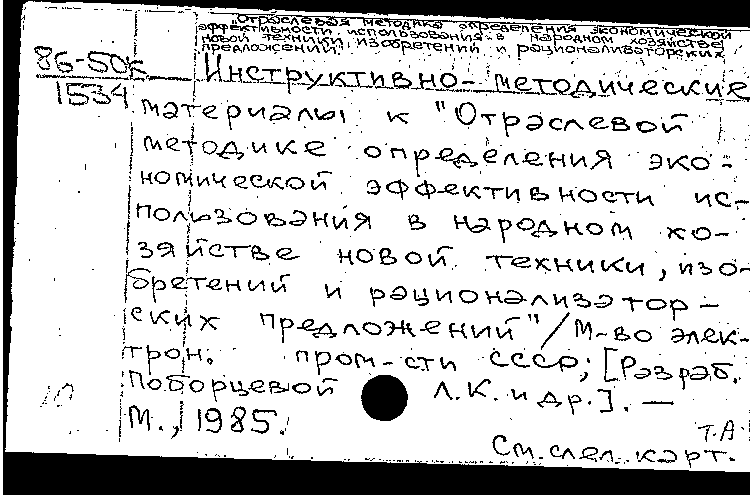 "Отраслевая методика определения экономической
эффективности использования в народном хозяйстве
новой техники, изобретений и рационализаторских
предложений"
86-50к
1534
Инструктивно-методические
материалы к "Отраслевой
методике определения эко-
номической эффективности ис-
пользования в народном хо-
зяйстве новой техники, изо-
бретений и рационализатор-
ских предложений"/М-во элек-
трон. пром-сти СССР; [Разраб.
Поборцевой Л.К. и др.]. —
М., 1985.
Т.А.
См. след. карт.